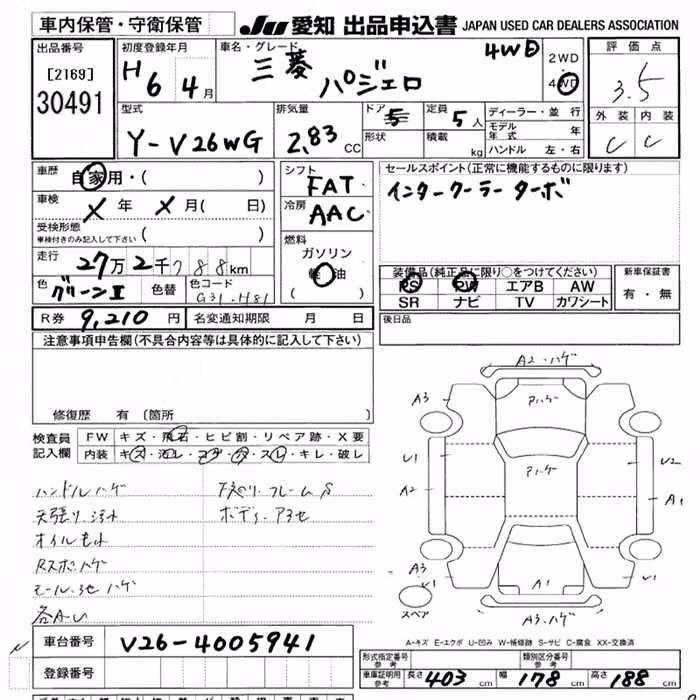 車内保管・守衛保管 JU 愛知 出品申込書 JAPAN USED CAR DEALERS ASSOCIATION
出品番号
[2169]
30491
初度登録年月
H 6 4月
車名・グレード
三菱 パジェロ 4WD
2WD
4WD
評価点
3.5
外装 内装
C C
型式
Y-V26WG
排気量
2,83 CC
ドア 5
形状
定員 5人
積載 kg
ディーラー・並行
モデル年式 年
ハンドル 左・右
車歴 自家用・( )
車検 X年 X月( 日)
受検形態
車検付きのみ記入して下さい ( )
走行 27万2千788km
色 グリーンII 色替 色コード G31.H81
シフト FAT
冷房 AAC
燃料
ガソリン
軽油
( )
セールスポイント(正常に機能するものに限ります)
インタークーラーターボ
装備品(純正品に限り○をつけてください)
PS PW エアB AW
SR ナビ TV カワシート
新車保証書
有・無
R券 9,210円 名変通知期限 月 日
後日品
注意事項申告欄(不具合内容等は具体的に記入して下さい)
修復歴 有〔箇所 〕
検査員記入欄
FW キズ・飛石・ヒビ割・リペア跡・X要
内装 キズ・汚レ・コゲ・穴・スレ・キレ・破レ
ハンドルハゲ
天張り汚れ
オイルもれ
ボディ
A2・ハゲ
A3
Aハゲ
V1
A2
V2
A1
Aハゲ
A3
V1
A1
V1
スペア
A3.ハゲ
A-キズ E-エクボ U-凹み W-補修跡 S-サビ C-腐食 XX-交換済
車台番号 V26-4005941
登録番号
形式指定番号 参考
類別区分番号 参考
車庫証明用 参考 長さ 403cm 幅 178cm 高さ 188cm